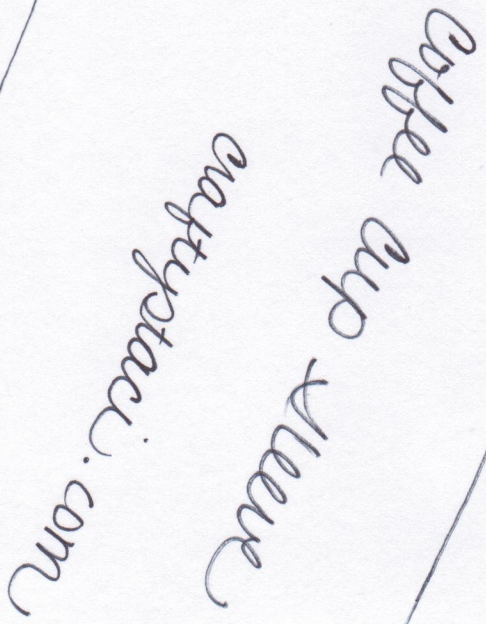 Coffee Cup Sleeve
craftystaci.com